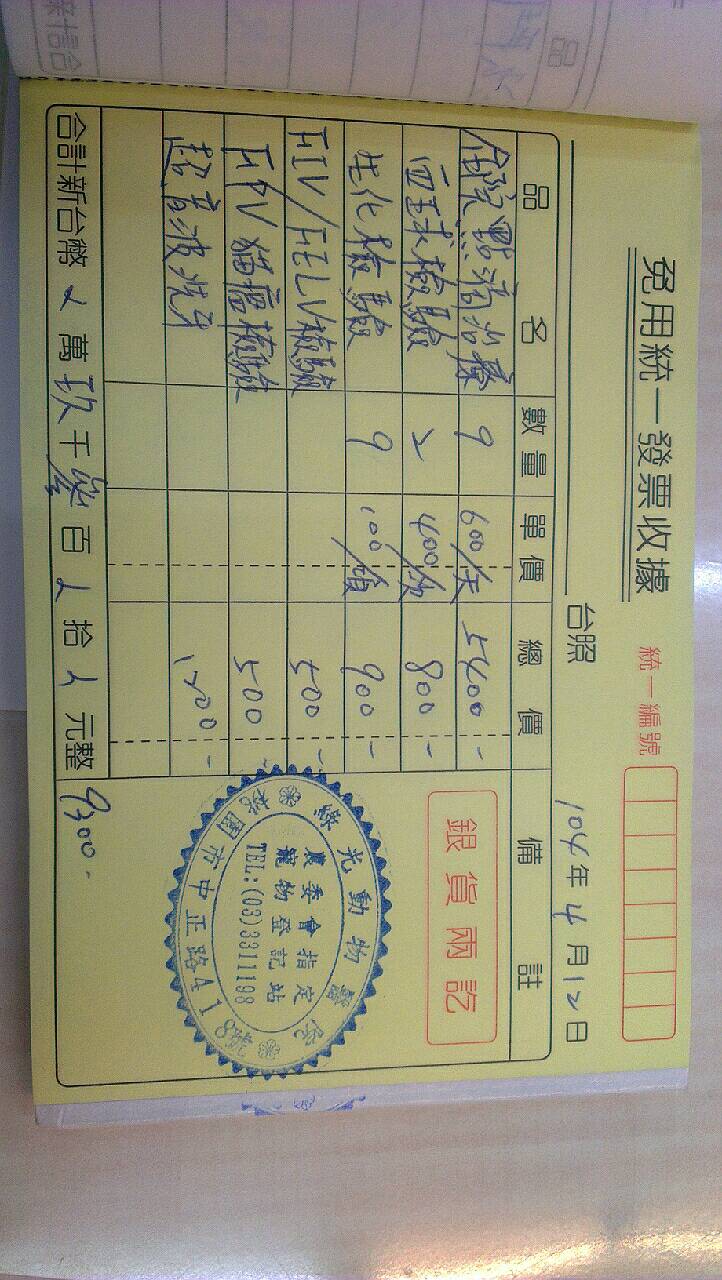 免用統一發票收據
統一編號
台照
104年4月12日
品名 數量 單價 總價 備註
住院點滴治療 9 600/天 5400-
血球檢驗 2 400/次 800-
生化檢驗 9 100/項 900-
FIV/FELV檢驗 500-
FPV貓瘟檢驗 500-
超音波洗牙 1200-
合計新台幣 萬玖千參百 拾 元整 9300-
銀貨兩訖
綠光動物醫院
農委會指定
寵物登記站
TEL:(03)3311198
桃園市中正路418號